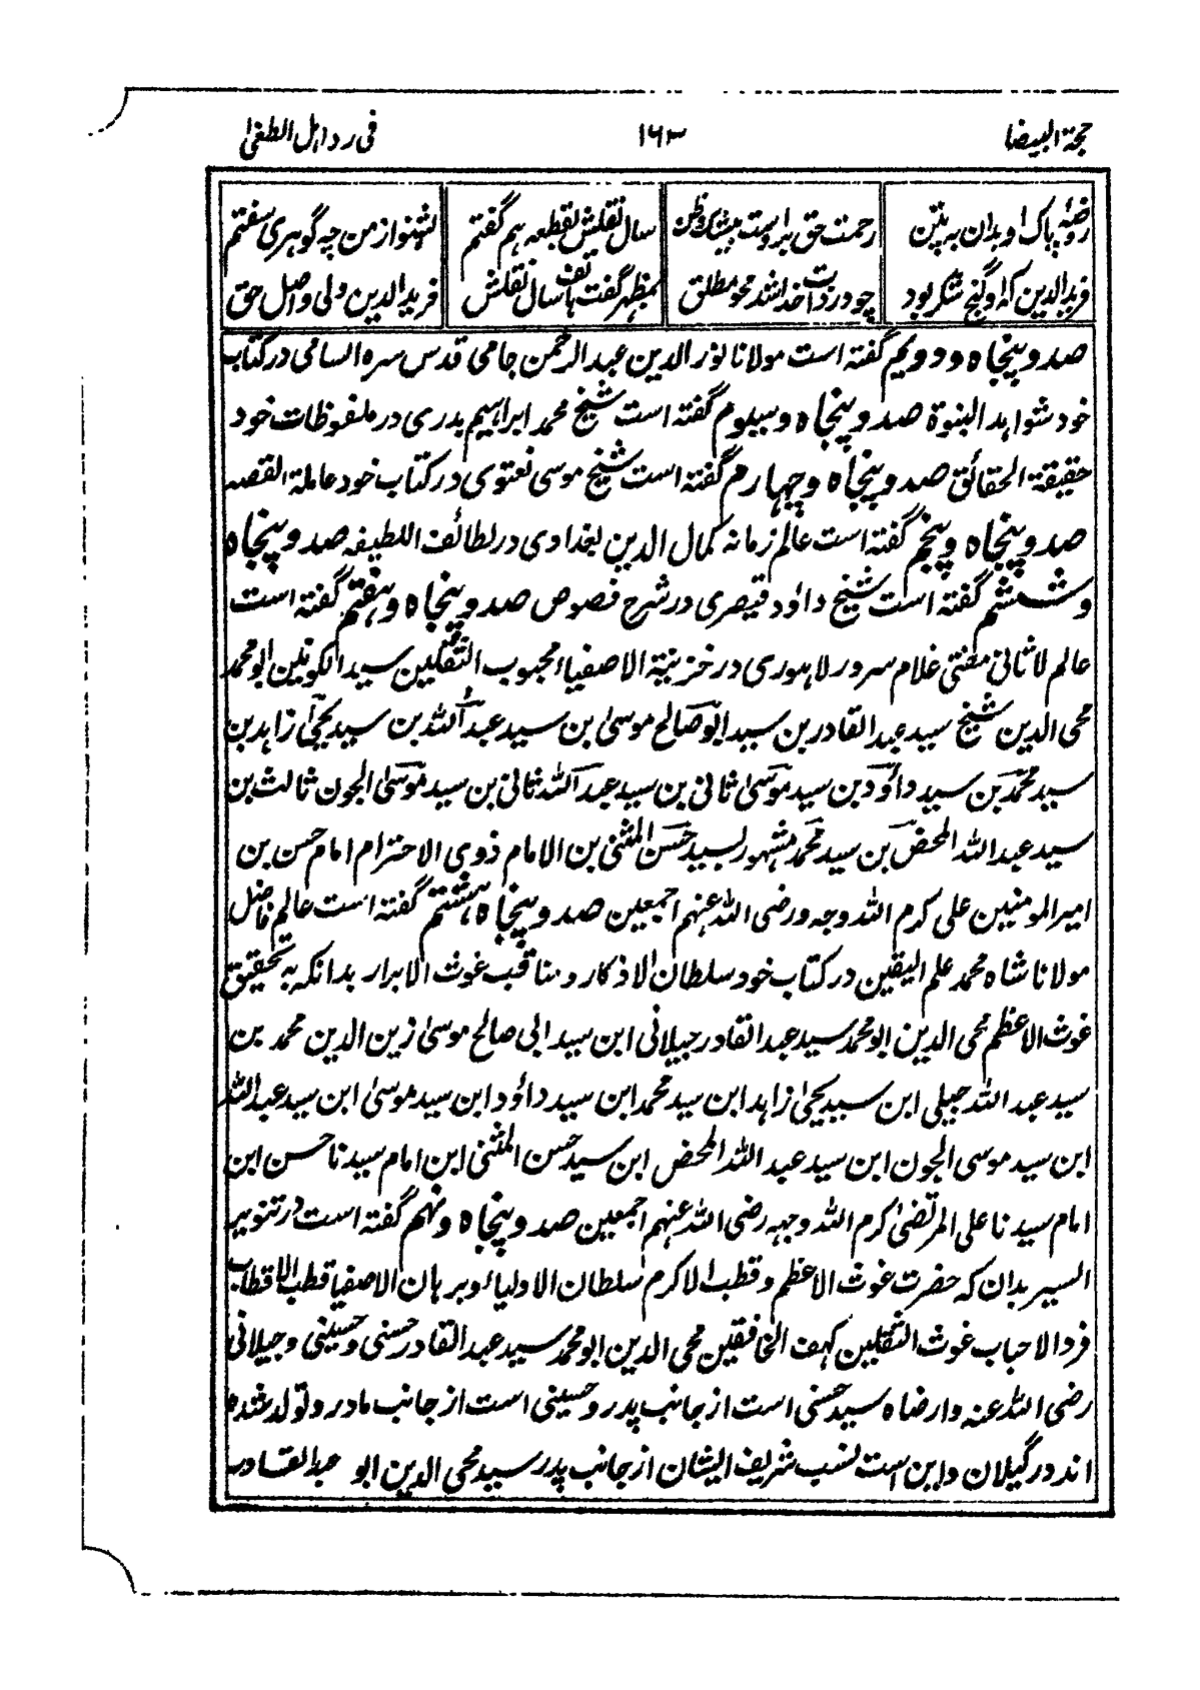 حجة البيضا ۱۶۳ فی رد اہل الطغیٰ
روضۂ پاک او بدان بہ پتن رحمت حق بر اوست بیشک و ظن سال نقلش بقطعہ ہم گفتم بشنو از من چہ گوہری سفتم
فرید الدین کہ او گنج شکر بود چو در ذات خدا شد محو مطلق بمظہر گفت ہاتف سال نقلش فرید الدین ولی واصل حق
صد و پنجاہ و دویم گفتہ است مولانا نور الدین عبد الرحمن جامی قدس سرہ السامی در کتاب
خود شواہد النبوة صد و پنجاہ و سیوم گفتہ است شیخ محمد ابراہیم بدری در ملفوظات خود
حقیقة الحقائق صد و پنجاہ و چہارم گفتہ است شیخ موسی نعتوی در کتاب خود عاملة القصہ
صد و پنجاہ و پنجم گفتہ است عالم زمانہ کمال الدین بغدادی در لطائف اللطیفہ صد و پنجاہ
و ششم گفتہ است شیخ داؤد قیصری در شرح فصوص صد و پنجاہ و ہفتم گفتہ است
عالم لاثانی مفتی غلام سرور لاہوری در خزینة الاصفیاء محبوب الثقلین سید الکونین ابو محمد
محی الدین شیخ سید عبد القادر بن سید ابو صالح موسیٰ بن سید عبد اللہ بن سید یحییٰ زاہد بن
سید محمد بن سید داؤد بن سید موسیٰ ثانی بن سید عبد اللہ ثانی بن سید موسیٰ الجون ثالث بن
سید عبد اللہ المحض بن سید محمد مشہور بسید حسن المثنی بن الامام ذوی الاحترام امام حسن بن
امیر المومنین علی کرم اللہ وجہ و رضی اللہ عنہم اجمعین صد و پنجاہ ہشتم گفتہ است عالم فاضل
مولانا شاہ محمد علم الیقین در کتاب خود سلطان الاذکار و مناقب غوث الابرار بدانکہ بہ تحقیق
غوث الاعظم محی الدین ابو محمد سید عبد القادر جیلانی ابن سید ابی صالح موسیٰ زین الدین محمد بن
سید عبد اللہ جیلی ابن سید یحییٰ زاہد ابن سید محمد ابن سید داؤد ابن سید موسیٰ ابن سید عبد اللہ
ابن سید موسی الجون ابن سید عبد اللہ المحض ابن سید حسن المثنی ابن امام سیدنا حسن ابن
امام سیدنا علی المرتضیٰ کرم اللہ وجہہ رضی اللہ عنہم اجمعین صد و پنجاہ و نہم گفتہ است در تنویر
السیر بدان کہ حضرت غوث الاعظم و قطب الاکرم سلطان الاولیاء و برہان الاصفیا قطب الاقطاب
فرد الاحباب غوث الثقلین کہف الخافقین محی الدین ابو محمد سید عبد القادر حسنی و حسینی و جیلانی
رضی اللہ عنہ و ارضاہ سید حسنی است از جانب پدر و حسینی است از جانب مادر و تولد شدہ
اند در گیلان و این است نسب شریف ایشان از جانب پدر سید محی الدین ابو عبد القادر